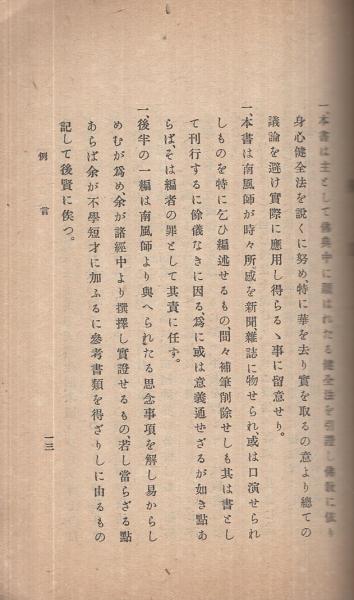 一、本書は主として佛典中に顯はれたる健全法を引證し佛敎に依り
身心健全法を說くに努め特に華を去り實を取るの意より總ての
議論を避け實際に應用し得らるゝ事に留意せり。
一、本書は南風師が時々所感を新聞雜誌に物せられ、或は口演せられ
しものを特に乞ひ編述せるもの、間々補筆削除せしも其は書とし
て刊行するに餘儀なきに因る、爲に或は意義通せざるが如き點あ
らば、そは編者の罪として其責に任す。
一、後半の一編は南風師より與へられたる思念事項を解し易からし
めむが爲め、余が諸經中より撰擇し實證せるもの、若し當らざる點
あらば余が不學短才に加ふるに參考書類を得ざりしに由るもの
記して後賢に俟つ。
例言
一三